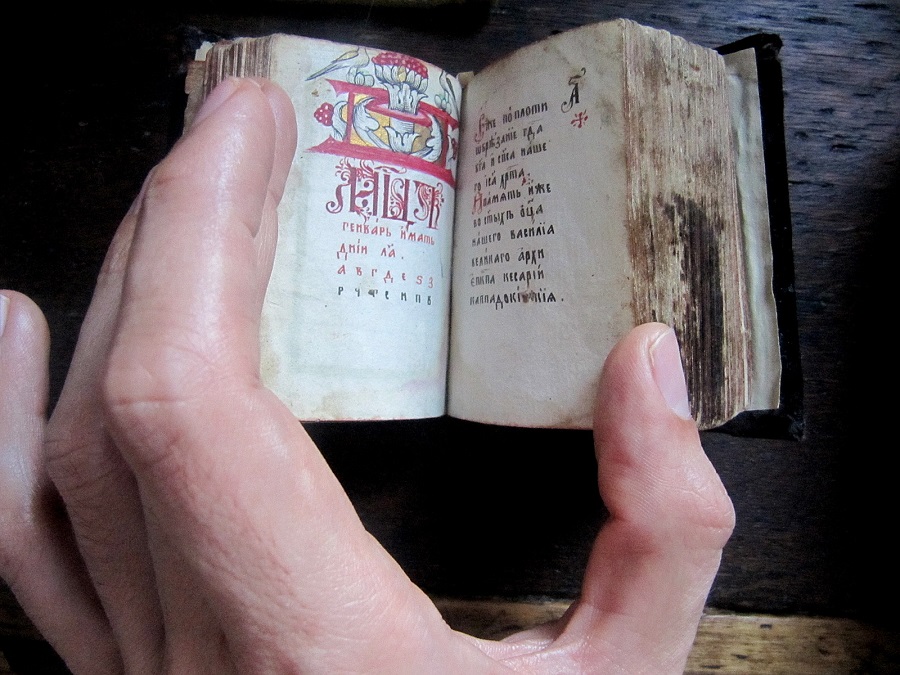 мⷭ҇ца
генварь имать
дніи ла .
а в г д е ѕ з
Еже по плоти
ѡбрѣзаніе гда
бга и спса наше
го іса хрта.
И память иже
во стыхъ оца
нашего василіа
великаго архи
епкпа кесаріи
каппадокійскіа .